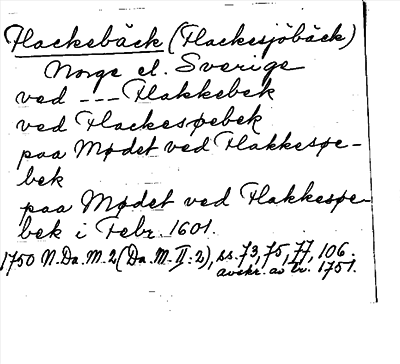 Flackebäck (Flackesjöbäck)
Norge el. Sverige
ved --- Flakkebek
ved Flackesøebek
paa Mødet ved Flakkesøe-
bek
paa Mødet ved Flakkesøe-
bek i Febr. 1601.
1750 N. Da. M. 2 (Da. M. II: 2), ss. 73, 75, 77, 106.
avskr. av br. 1751.